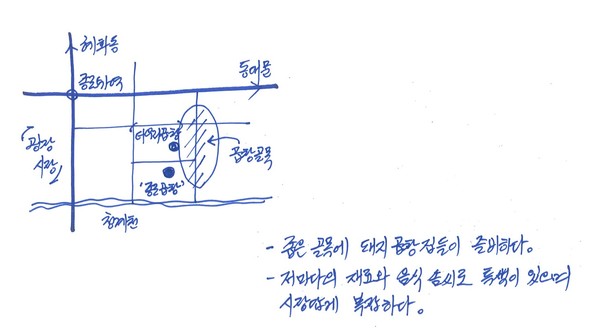 혜화동
동대문
종로5가역
『광장
시장』
곱창골목
'종로곱창'
청계천
- 좁은 골목에 돼지곱창집들이 즐비하다.
- 저마다의 재료와 음식 솜씨로 특색이 있으며
시장답게 복잡하다.